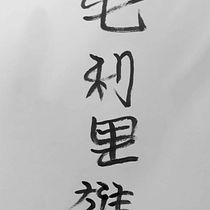 毛利里